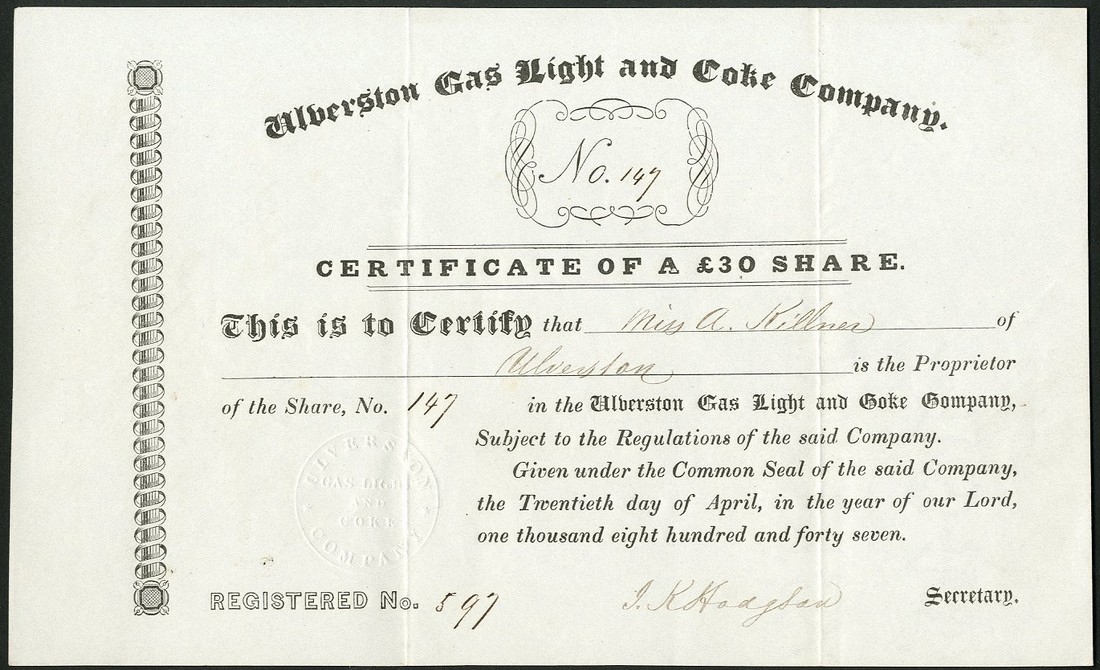 Ulverston Gas Light and Coke Company.
No. 147
CERTIFICATE OF A £30 SHARE.
This is to Certify that Miss A. Killner of
Ulverston is the Proprietor
of the Share, No. 147 in the Ulverston Gas Light and Coke Company,
Subject to the Regulations of the said Company.
Given under the Common Seal of the said Company,
the Twentieth day of April, in the year of our Lord,
one thousand eight hundred and forty seven.
ULVERSTON
GAS LIGHT
AND
COKE
COMPANY
REGISTERED No. 597 J. K Hodgson Secretary.